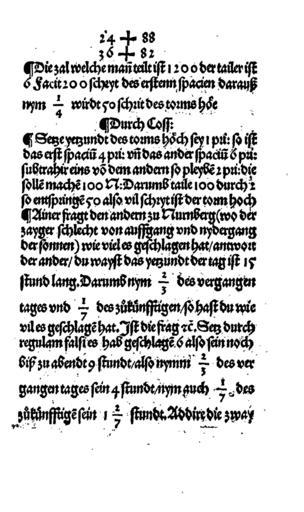 24 ┼ 88
36 ┼ 82
¶Die zal welche mañ teilt ist 1200 der tailer ist
6 Facit 200 schryt des ersten spacien darauß
nym 1/4 wirdt 50 schrit des torms höe
¶Durch Coss:
¶ Setze yetzundt des torms höch sey 1 pri: so ist
das erst spaciũ 4 pri: vñ das ander spaciũ 6 pri:
subtrahir eins võ dem andern so pleybẽ 2 pri: die
sollẽ machẽ 100 N: Darumb taile 100 durch 2
so entspringẽ 50 also vil schryt ist der torm hoch
¶Ainer fragt den andern zu Nurnberg (wo der
zayger schlecht von auffgang vnd nydergang
der sonnen) wie viel es geschlagen hat/antwort
der ander/du wayst das yetzundt der tag ist 15
stund lang. Darumb nym 2/3 des vergangen
tages vnd 1/7 des zůkünfftigen/so hast du wie
vil es geschlagẽ hat. Ist die frag ꝛc. Setz durch
regulam falsi es hab geschlagẽ 6 also sein noch
biß zu abendt 9 stundt/also nymm 2/3 des ver
gangen tages sein 4 stundt/nym auch 1/7 des
zůkünfftigẽ sein 1 2/7 stundt. Addire die zway